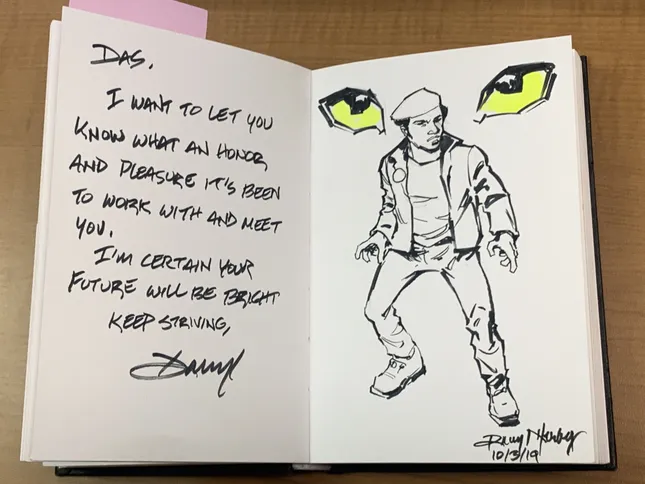 DAS,
I WANT TO LET YOU
KNOW WHAT AN HONOR
AND PLEASURE IT'S BEEN
TO WORK WITH AND MEET
YOU.
I'M CERTAIN YOUR
FUTURE WILL BE BRIGHT
KEEP STRIVING,
Darryl
10/3/19